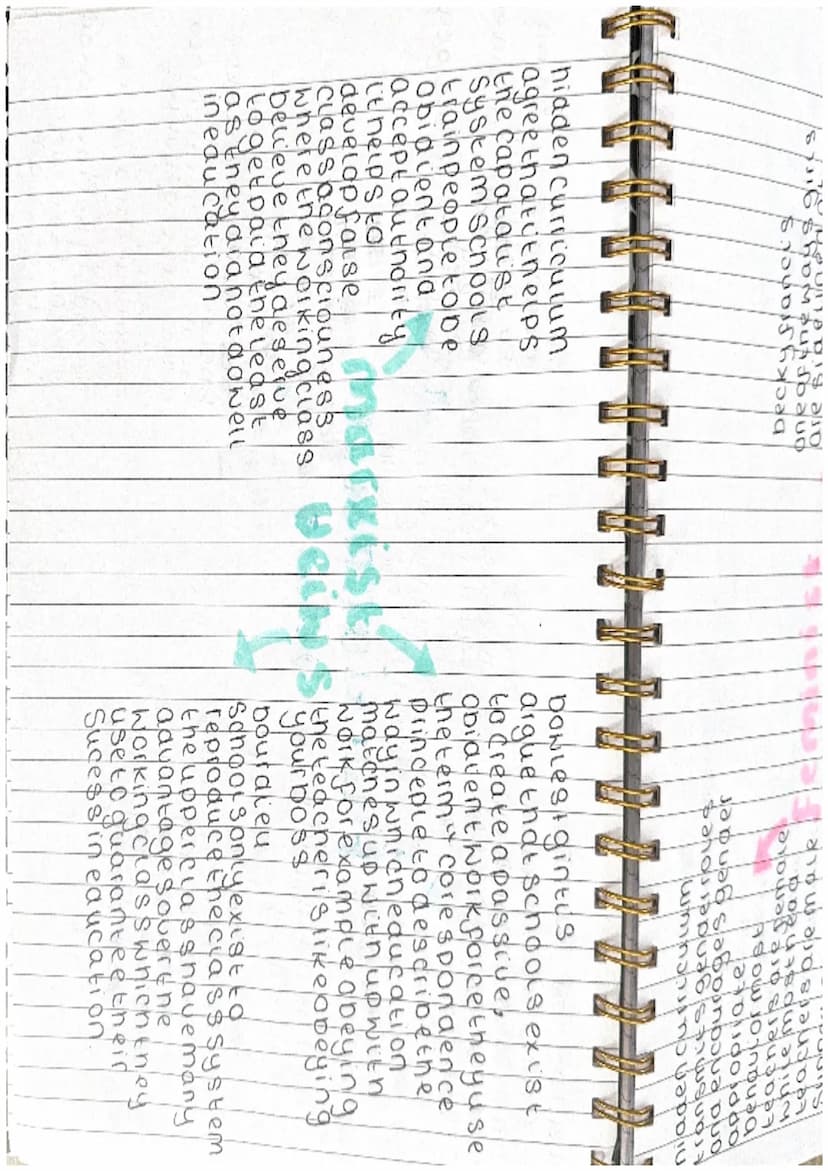 hidden curricuum
agree that it helps
the capatalist
system schools
train people to be
obidient and
accept authority
it helps to
develop false
class aconsciouness
where the working class
believe they deserve
to get paid the least
as they did not do well
in education
marxist
veiws
bowles + gintis
argue that schools exist
to create a passive,
obidient workforce they use
the term " corespondence
princeple to describe the
way in which education
matches up with up with
work for example obeying
the teacher is like obeying
your boss
bourdieu
schools only exist to
reproduce the class system
the upper class have many
advantages over the
working class which they
use to guarantee their
sucess in education
becky francis
one of the ways girls
are
feminist
hidden curriculum
transmits gender roles
and encourages gender
appropriate
behavior most
teachers are female
while most head
teachers are male